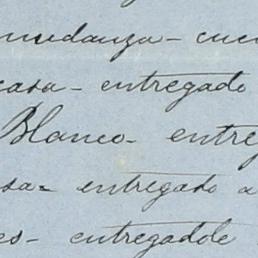 mudanza - cuen
casa - entregado
Blanco - entreg
sa = entregado a
es - entregadole